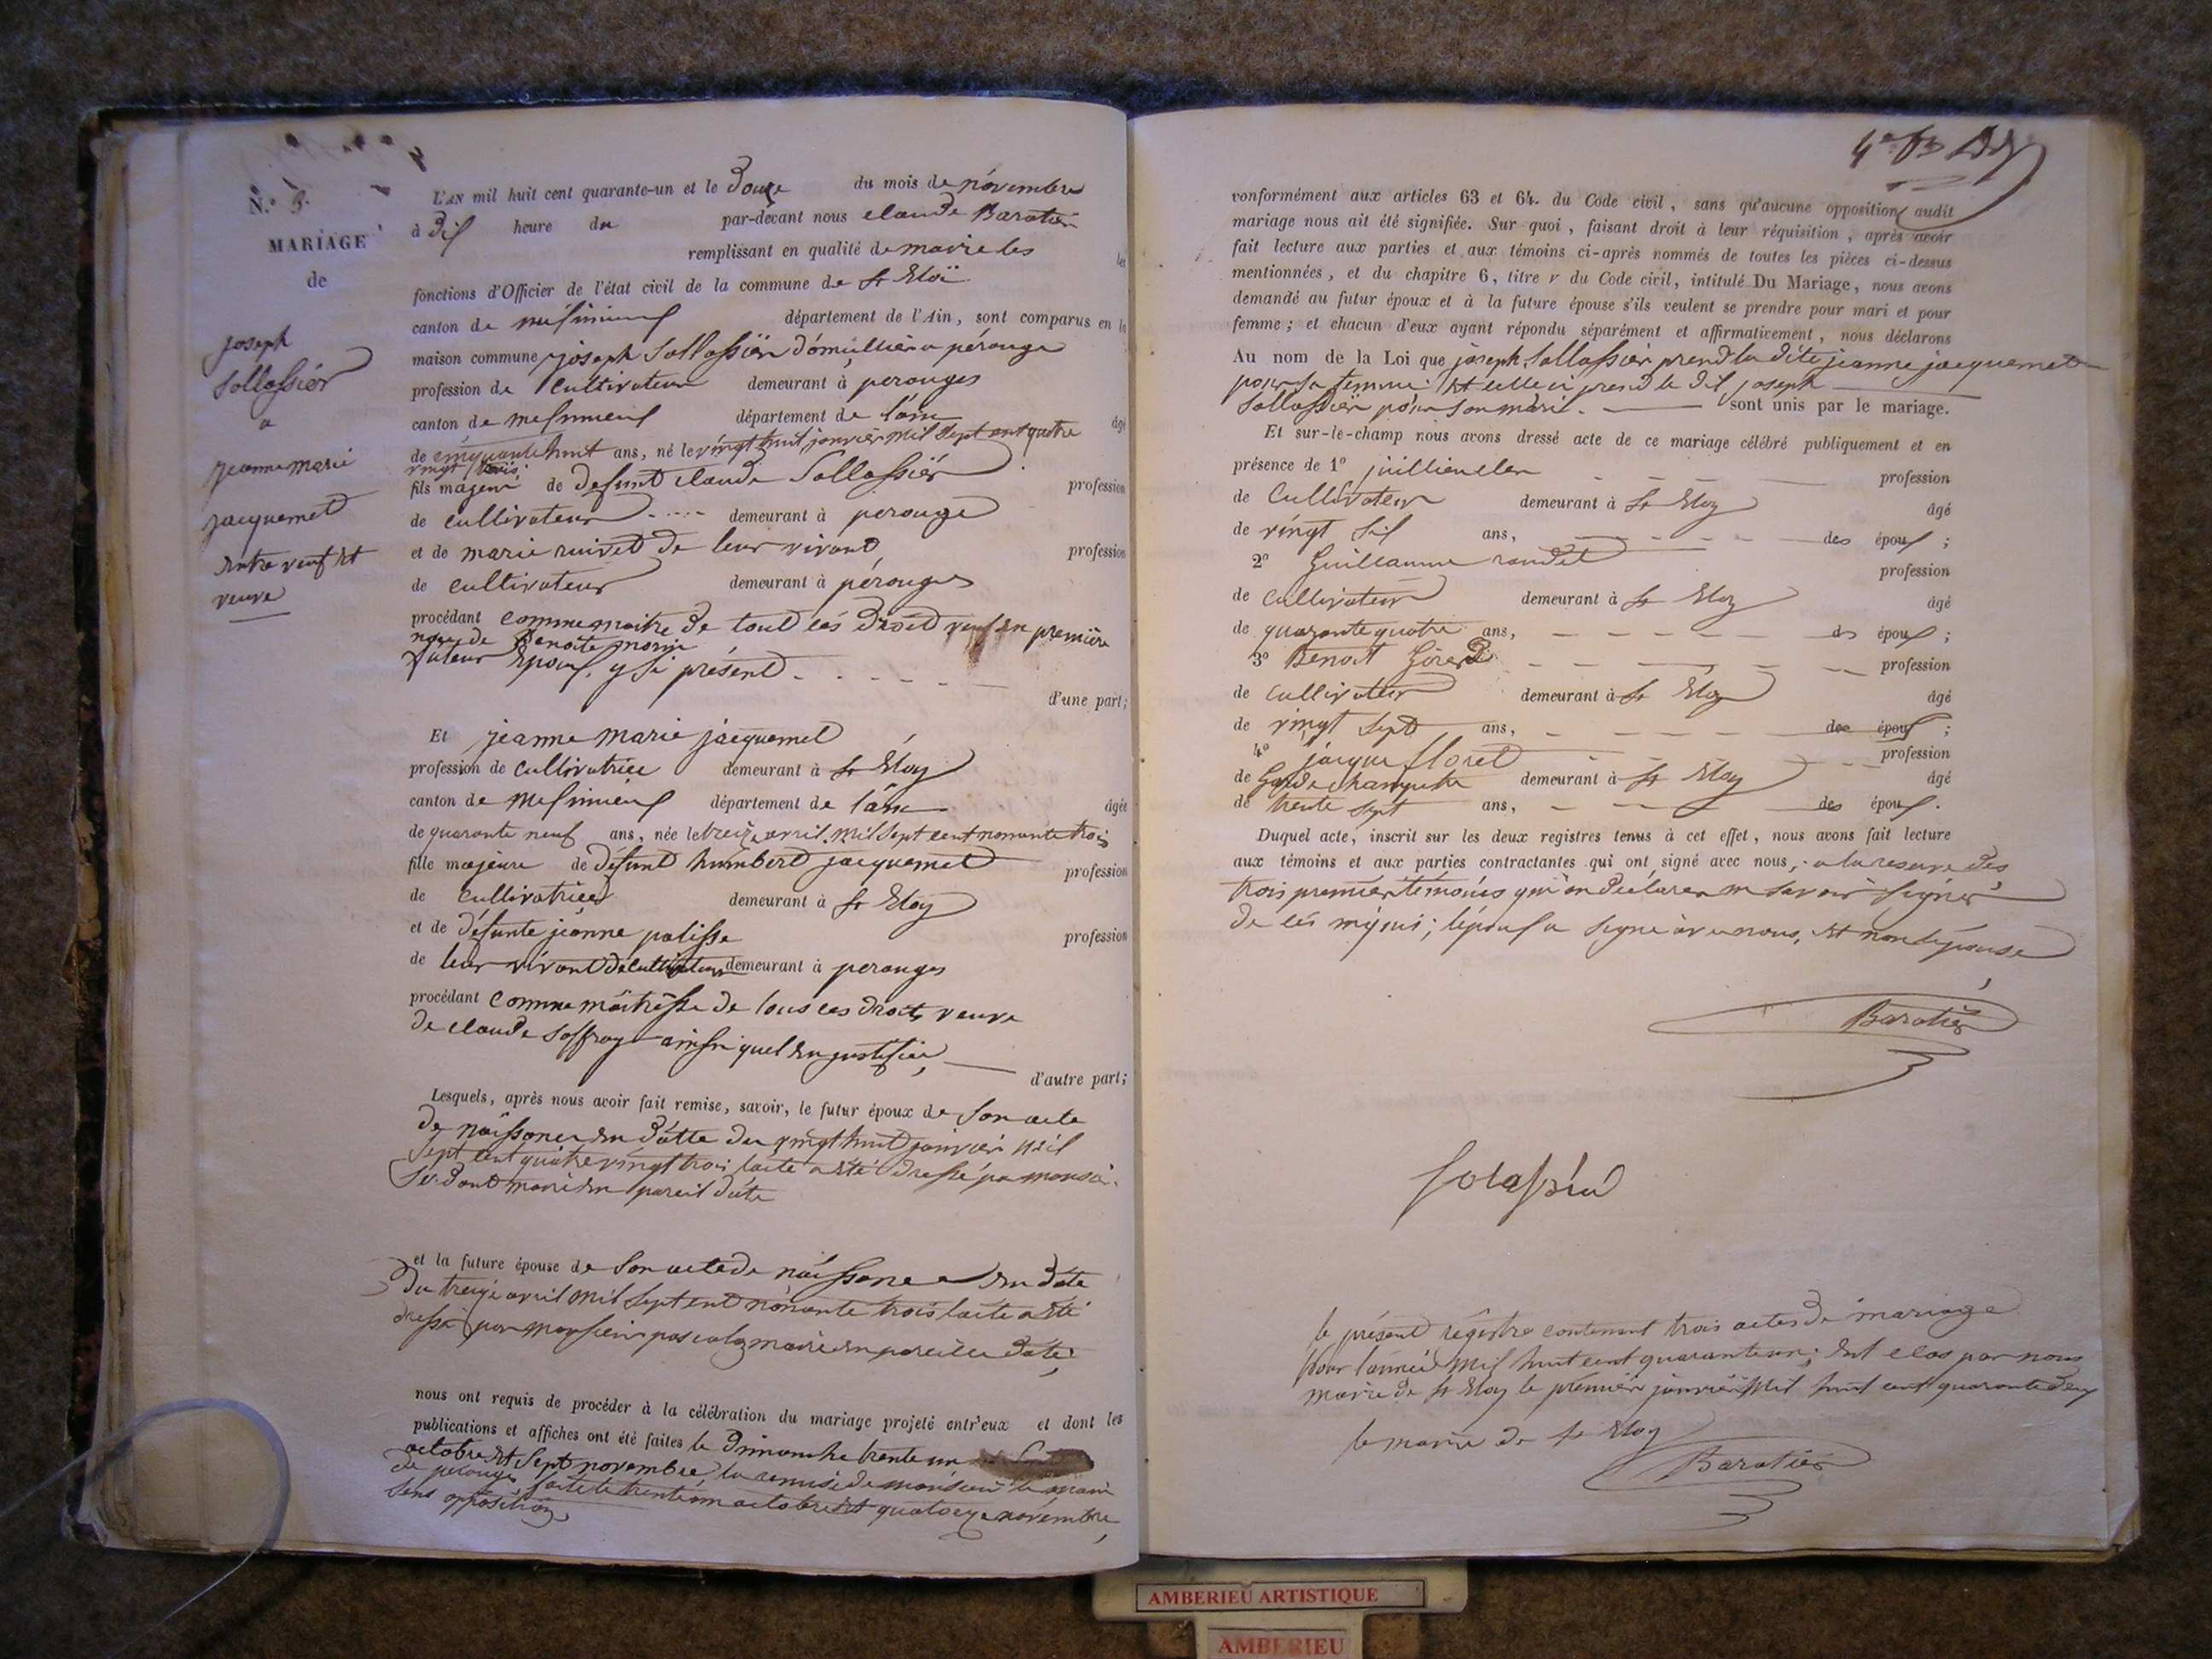 N.º 3.
MARIAGE
de
joseph
Sollassiér
a
jeanne marie
jacquemet
entre veuf et
veuve
L'AN mil huit cent quarante-un et le Douze du mois de novembre
à Dix heure du par-devant nous claude Baratier
remplissant en qualité de maire les
les
fonctions d'Officier de l'état civil de la commune de St Eloï
canton de meximieux département de l'Ain, sont comparus en la
maison commune joseph Sollassiér domicillier a pérouge
profession de Cultivateur demeurant à perouges
canton de meximieux département de l'ain âgé
de cinquante huit ans, né le vingt huit janvier mil Sept cent quatre
vingt trois
fils majeur de defunt claude Sollassiér profession
de cultivateur demeurant à perouge
et de marie ruivet de leur vivant profession
de cultivateur demeurant à pérouges
procédant comme maitre de tout cés Droit veuf en première
noce de Benoite morin
futeur Epoux, y si présent
d'une part;
Et jeanne marie jacquemet
profession de cultivatrice demeurant à St Eloy
canton de meximieux département de l'ain âgée
de quarante neuf ans, née le treize avril mil Sept cent nonante trois
fille majeure de défunt humbert jacquemet profession
de cultivatrice demeurant à St Eloy
et de défunte jeanne palisse profession
de leur vivant de cultivateur demeurant à perouges
procédant comme maitresse de tous ces droits veuve
de claude Soffray ainsi quel en justifie,
d'autre part;
Lesquels, après nous avoir fait remise, savoir, le futur époux de Son acte
de naissance en datte du vingt huit janvier mil
Sept cent quatre vingt trois lacte a été dressé par
maire en pareil date
et la future épouse de Son acte de naissance en date
du treize avril mil Sept cent nonante trois lacte a été
dressé par monsieur maire en pareille date,
nous ont requis de procéder à la célébration du mariage projeté entr'eux et dont les
publications et affiches ont été faites le Dimanche trente un
octobre et Sept novembre, la remise de monsieur le maire
de perouges, faite le trente un octobre et quatorze novembre,
Sans opposition,
vonformément aux articles 63 et 64. du Code civil, sans qu'aucune opposition audit
mariage nous ait été signifiée. Sur quoi, faisant droit à leur réquisition, après avoir
fait lecture aux parties et aux témoins ci-après nommés de toutes les pièces ci-dessus
mentionnées, et du chapitre 6, titre v du Code civil, intitulé Du Mariage, nous avons
demandé au futur époux et à la future épouse s'ils veulent se prendre pour mari et pour
femme; et chacun d'eux ayant répondu séparément et affirmativement, nous déclarons
Au nom de la Loi que joseph Sollassiér prend la dite jeanne jacquemet
pour Sa femme et celle ci prend le dit joseph
Sollassiér pour Son mari. sont unis par le mariage.
Et sur-le-champ nous avons dressé acte de ce mariage célébré publiquement et en
présence de 1º profession
de Cultivateur demeurant à St Eloy âgé
de vingt Six ans, des époux;
2º Guillaume profession
de cultivateur demeurant à St Eloy âgé
de quarante quatre ans, des époux;
3º Benoit Girerd profession
de cultivateur demeurant à St Eloy âgé
de vingt Sept ans, des époux;
4º jacque floret profession
de Garde champetre demeurant à St Eloy âgé
de trente sept ans, des époux.
Duquel acte, inscrit sur les deux registres tenus à cet effet, nous avons fait lecture
aux témoins et aux parties contractantes qui ont signé avec nous, a la reserve des
trois premier témoins qui on déclarer ne savoir signer
de ces requis; lépoux a Signé avec nous, et non lépouse
Baratier
Solassiér
le présent régistre contenant trois actes de mariage
pour lannée mil huit cent quarante un; Est clos par nous
maire de St Eloy le premier janvier mil huit cent quarante deux
le maire de St Eloy
Baratier
AMBERIEU ARTISTIQUE
AMBERIEU